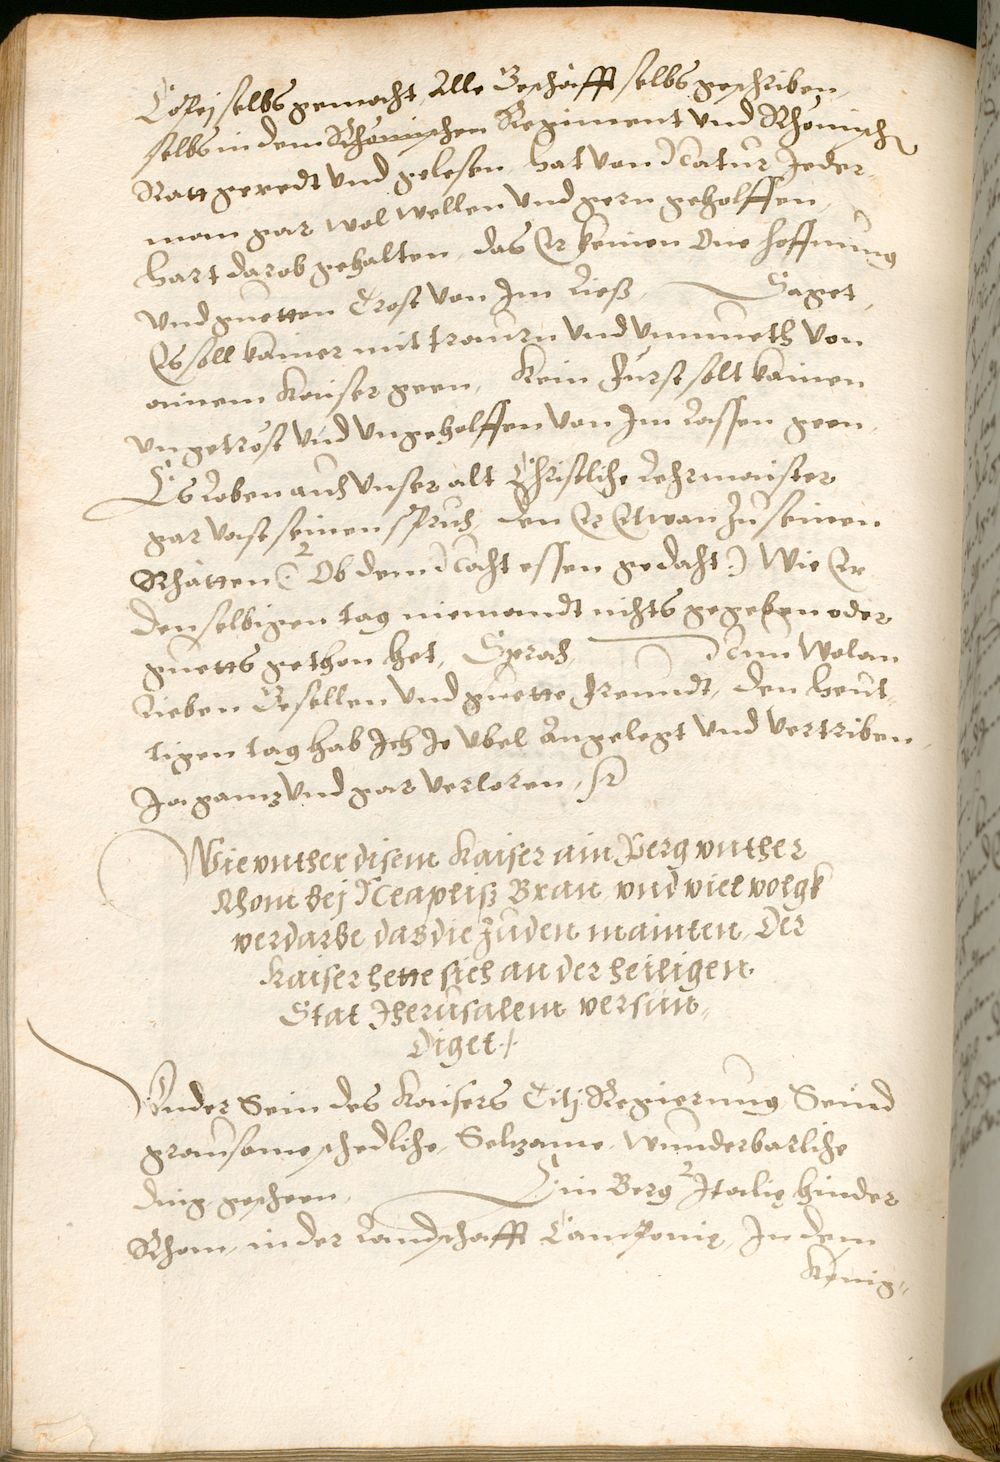 Copej selbs gemacht, Alle Geschäfft selbs geschriben,
selbs in dem Rhömischen Regiment vnd Rhömisch
Ratt geredt vnd gelesen, hat von Natur Jeder-
man gar wol wellen vnd gern geholffen,
hart darob gehalten, das Er keinen One hoffnung
vnd guetten Trost von Jm Ließ, Saget,
Es soll kainer mit traurn vnd vnmueth von
ainem Kaiser geen, Kein Fürst solt kainen
vngetröst vnd vngeholffen von Jm Lassen geen,
Es Loben auch vnser alt Christliche Lehrmaister
gar vast seinen spruch, den Er Etwan Zu seinen
Rhätten (: Ob dem Nacht essen gedacht :) Wie Er
denselbigen tag niemandt nichts gegeben oder
guetts gethon het, Sprach, Nun Wolan
Lieben Gesellen vnd guette freundt, den heut-
tigen tag hab Jch Je vbel Angelegt vnd vertriben,
Ja ganz vnd gar verloren,
Wie vnther disem Kaiser ain Perg vnther
Rhom bej Neapliß Bran, vnd viel volgk
verdarbe, das die Juden mainten, Der
Kaiser hette sich an der heiligen
Stat Jherusalem versün-
diget
Vnder Sein des Kaisers Titj Regierung Seind
grausame schedliche, Selzame, wunderbarliche
ding gescheen, Ein Berg Jtalie hinder
Rhom, in der Landschafft Campanie, Jn dem
Kenig-